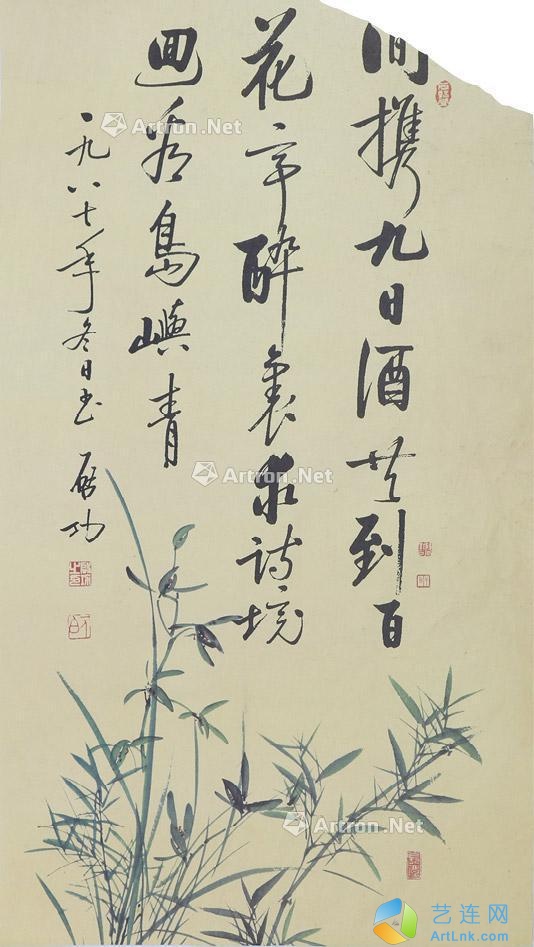 间携九日酒共到百
花亭醉裏求诗境
囬看島嶼青
一九八七年冬日书 启功
Artron.Net
Artron.Net
Artron.Net
Artron.Net
艺连网
ArtLink.com